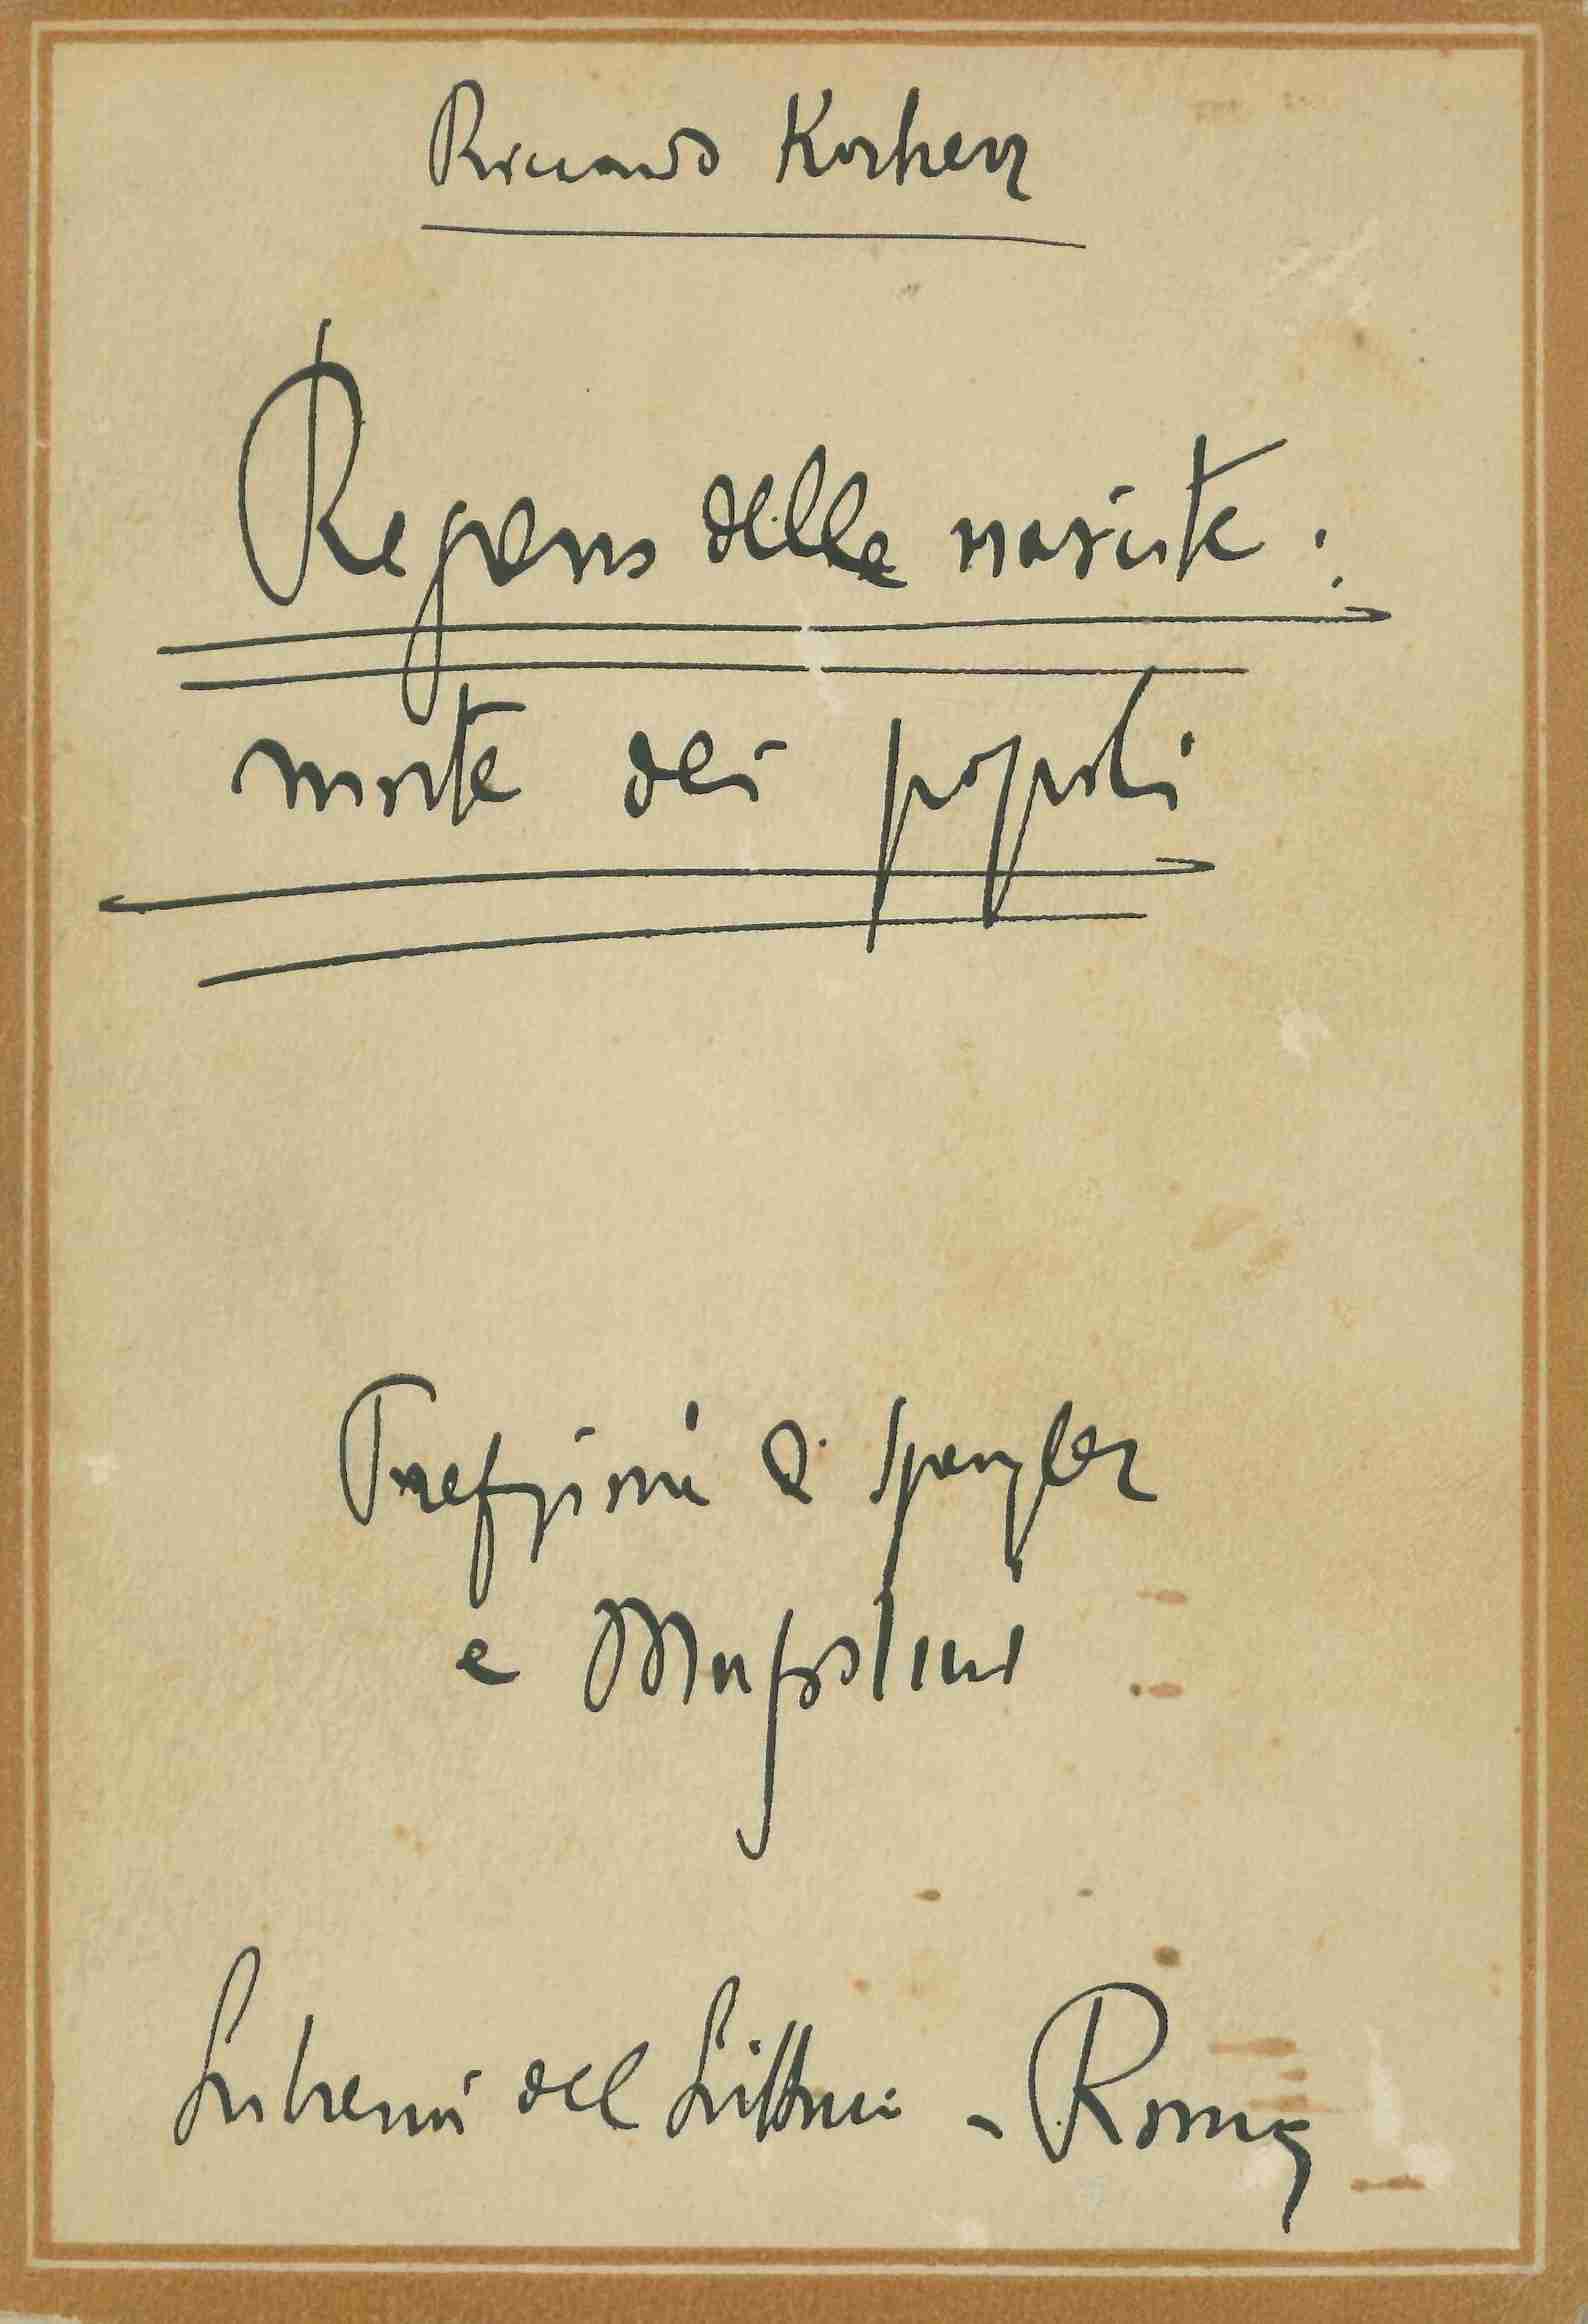 Riccardo Korherr
Regresso delle nascite:
morte dei popoli
Prefazioni di Spengler
e Mussolini
Libreria del Littorio - Roma